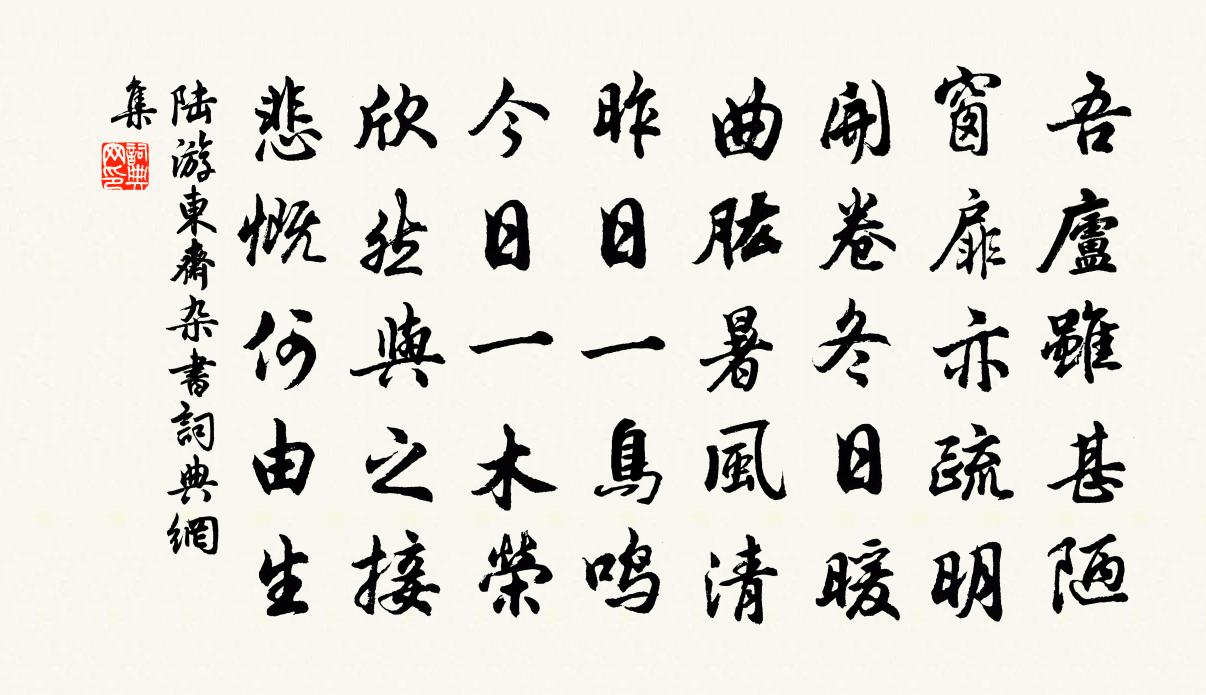 吾廬雖甚陋
窗扉亦疏明
開卷冬日暖
曲肱暑風清
昨日一鳥鳴
今日一木榮
欣然與之接
悲慨何由生
陆游東齋杂書詞典網
集
詞典网印